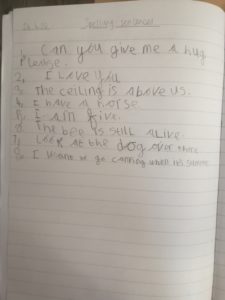 Spelling sentences
1. Can you give me a hug
Please.
2. I Love you
3. The ceiling is above us.
4. I have a horse.
5. I am five.
6. The bee is still alive.
7. Look at the dog over there
8. I want to go camping when it's summer